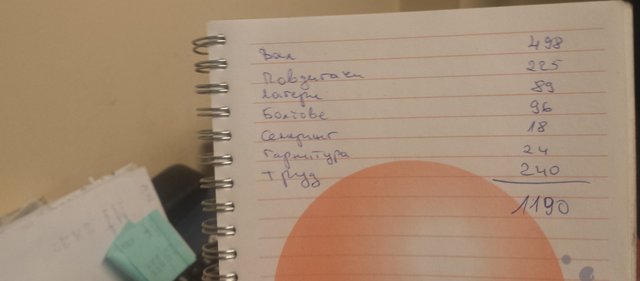 Вал 498
Повдигачи 225
Лагери 89
Болтове 96
Семеринг 18
Гарнитура 24
Труд 240
1190